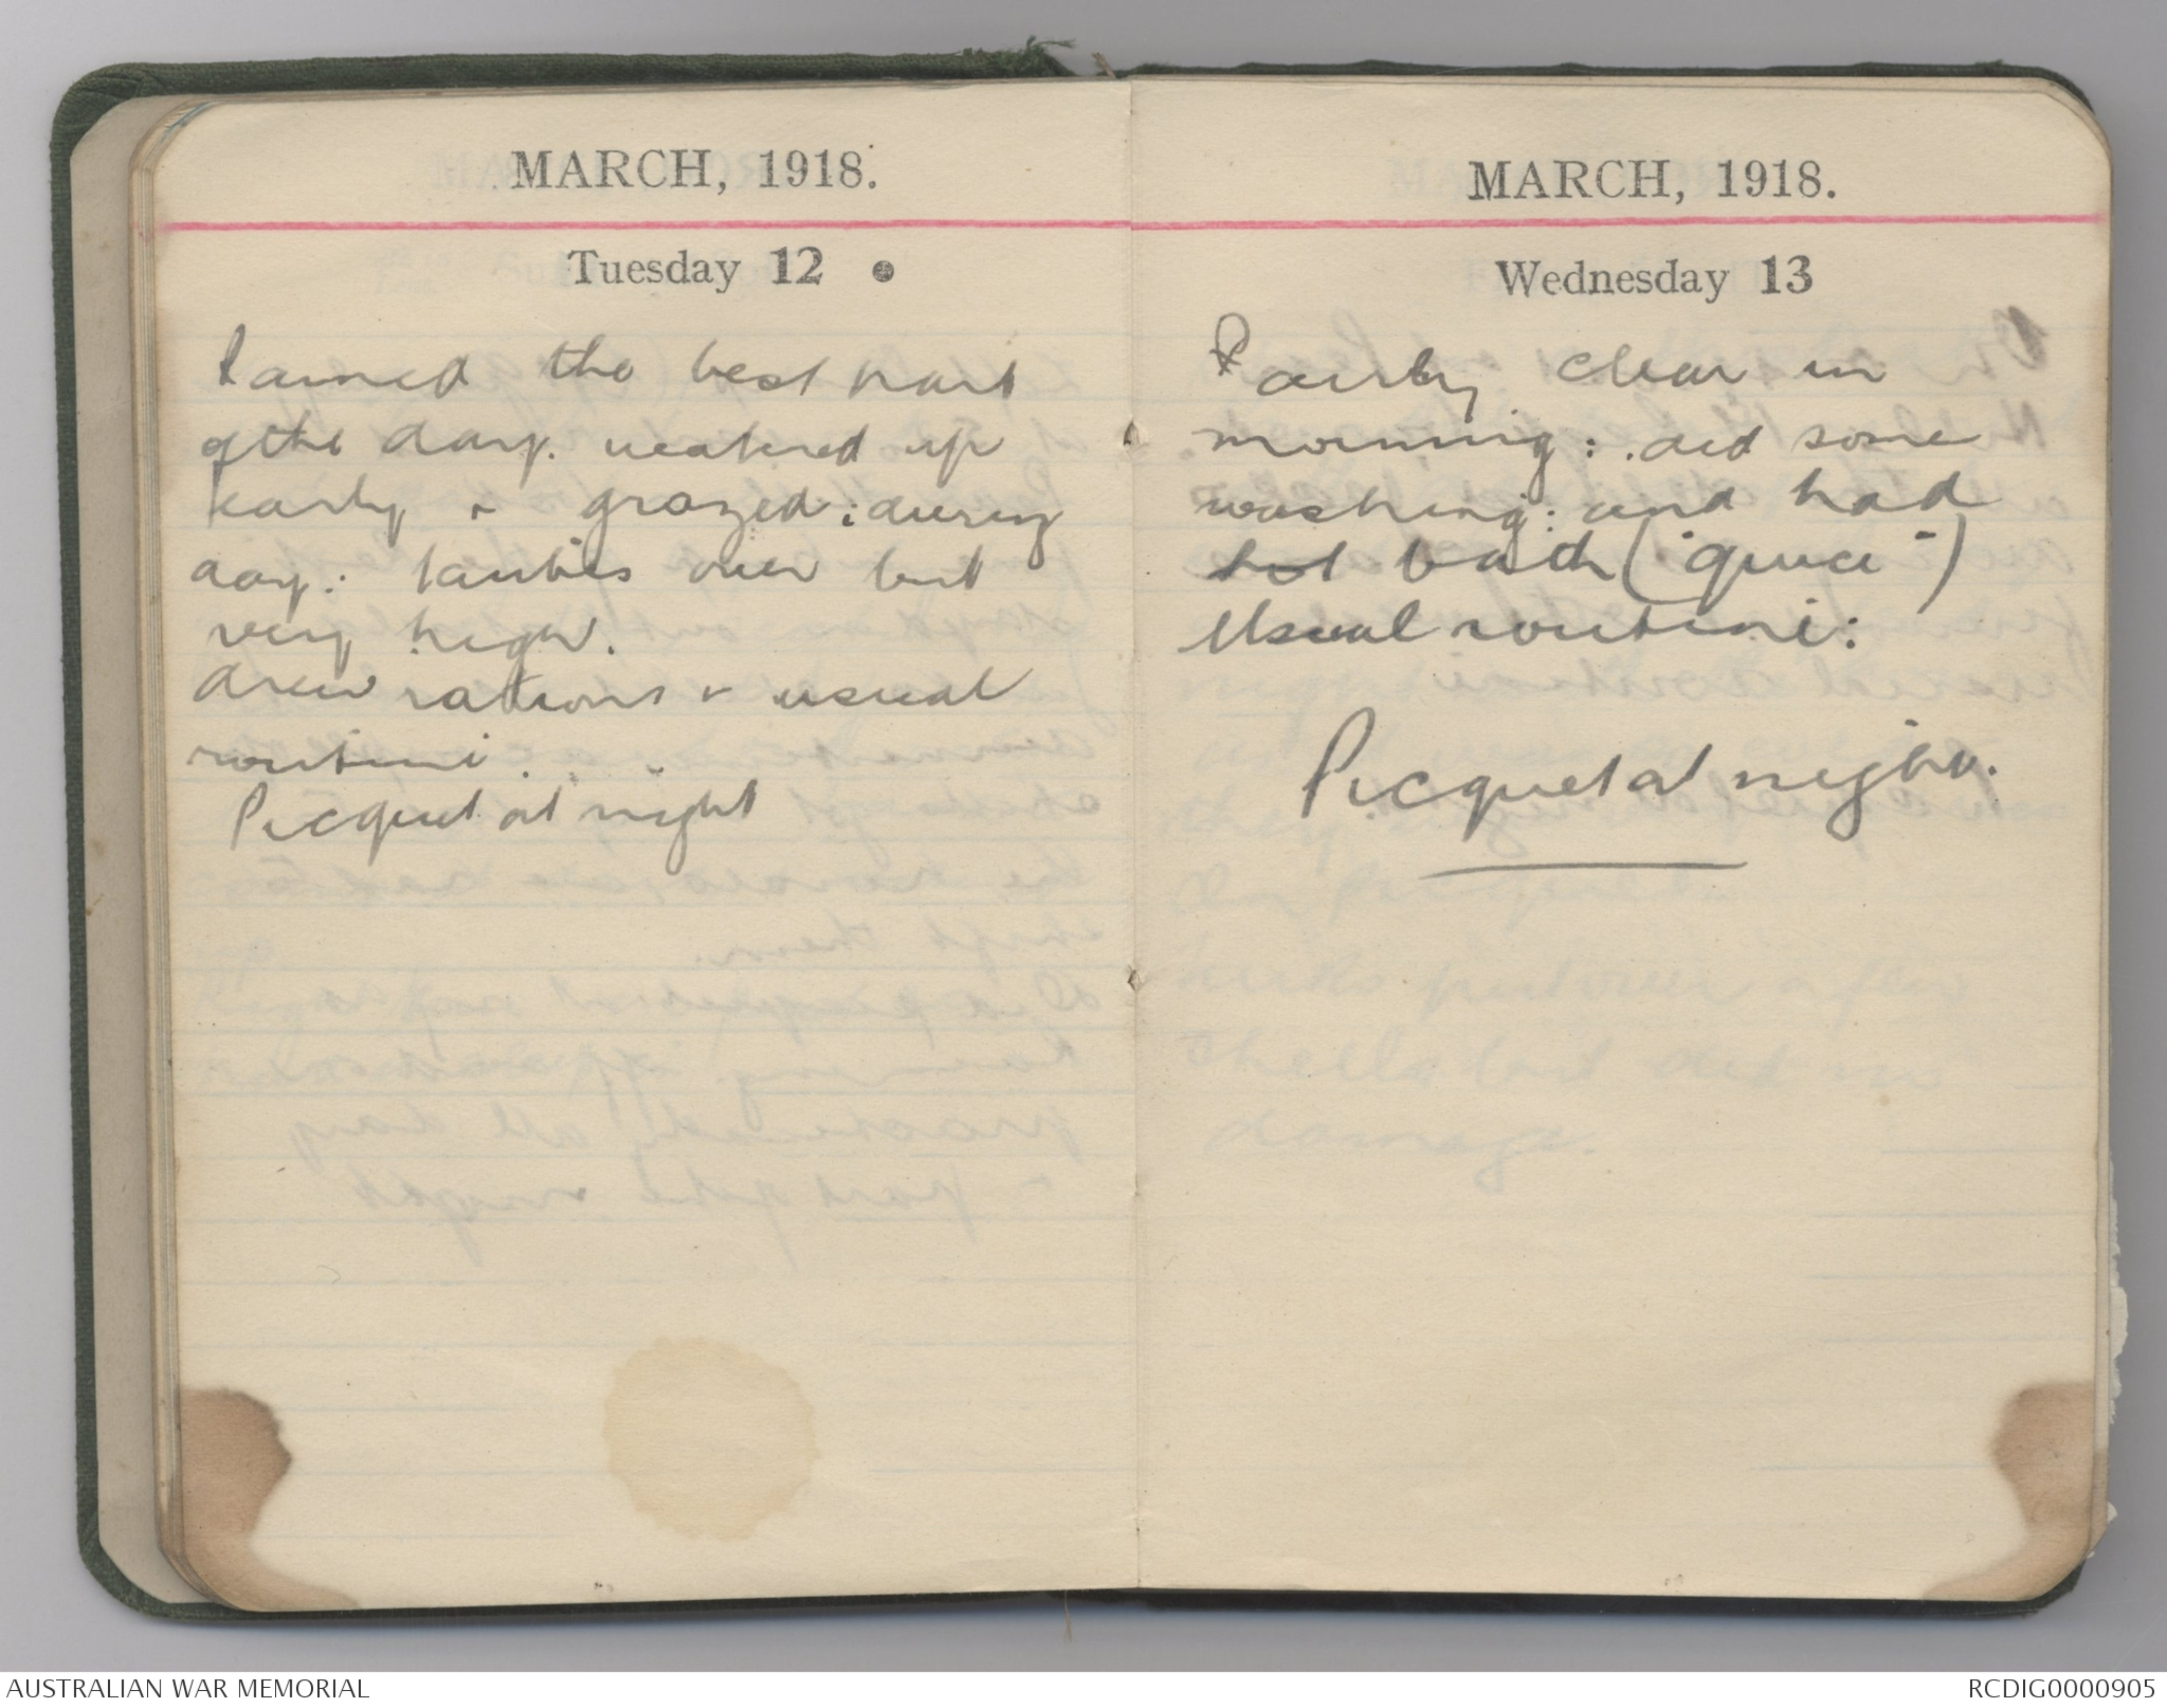 MARCH, 1918.
Tuesday 12
Rained the best part
of the day. watered up
early & grazed: during
day: taubes over but
very high.
Drew rations & usual
routine.
Picquet at night
MARCH, 1918.
Wednesday 13
Fairly clear in
morning: did some
washing: and had
hot bath
Usual routine:
Picquet at night.
AUSTRALIAN WAR MEMORIAL
RCDIG0000905